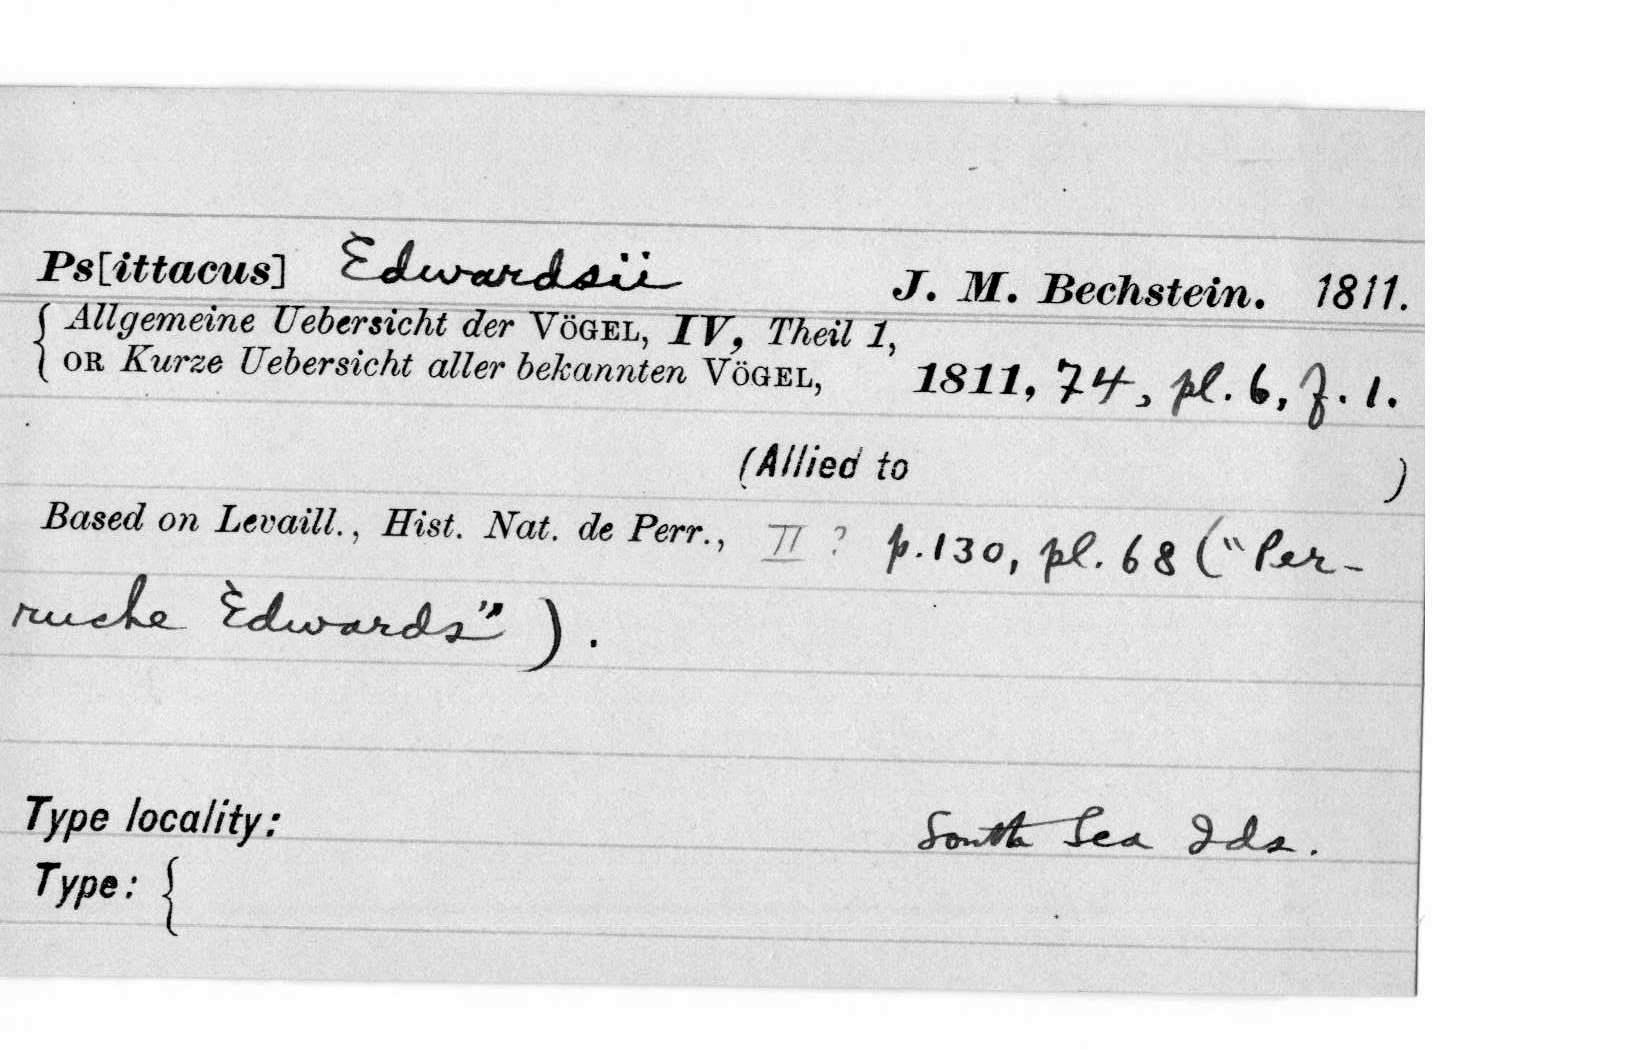 Ps[ittacus] Edwardsii J. M. Bechstein. 1811.
{ Allgemeine Uebersicht der VÖGEL, IV, Theil 1,
OR Kurze Uebersicht aller bekannten VÖGEL, 1811, 74, pl. 6, f. 1.
(Allied to )
Based on Levaill., Hist. Nat. de Perr., II ? p. 130, pl. 68 ("Per-
ruche Edwards").
Type locality: South Sea Ids.
Type: {